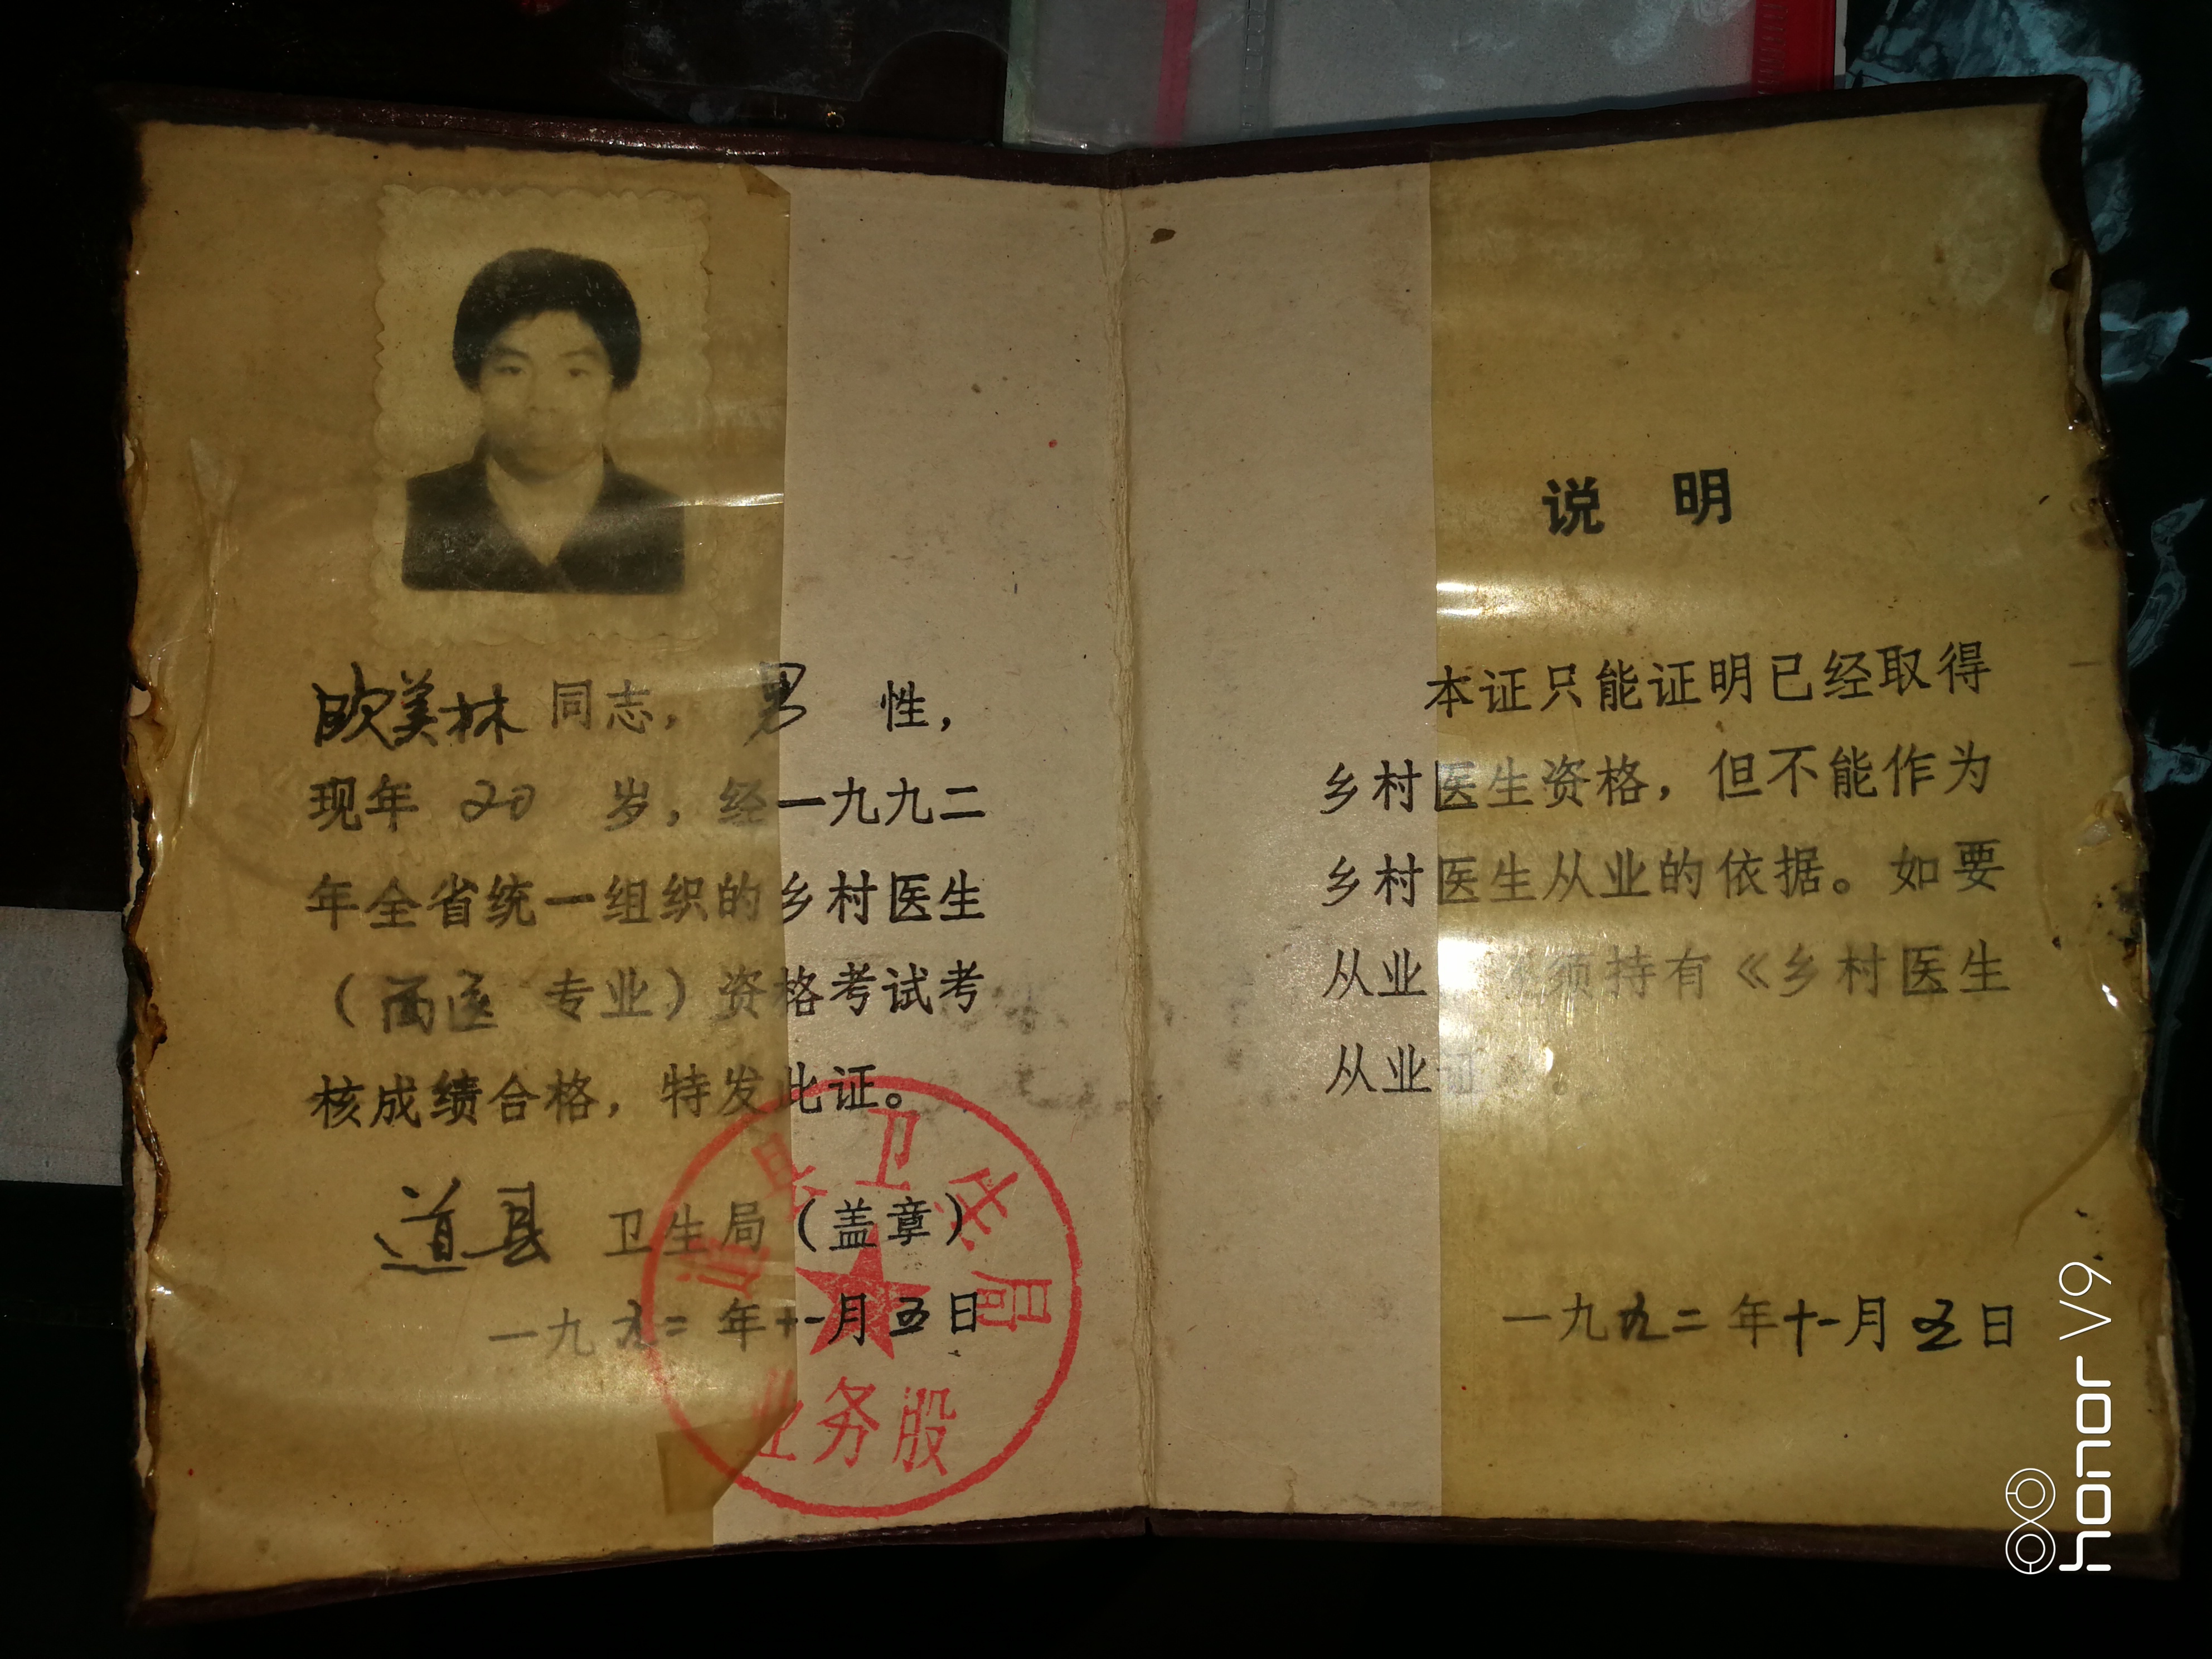 欧美林同志，男 性，
现年 20 岁，经一九九二
年全省统一组织的乡村医生
（西医 专业）资格考试考
核成绩合格，特发此证。
道县 卫生局（盖章）
一九九二年十一月五日
道县卫生局
业务股
说 明
本证只能证明已经取得
乡村医生资格，但不能作为
乡村医生从业的依据。如要
从业 须持有《乡村医生
从业证
一九九二年十一月五日
honor V9